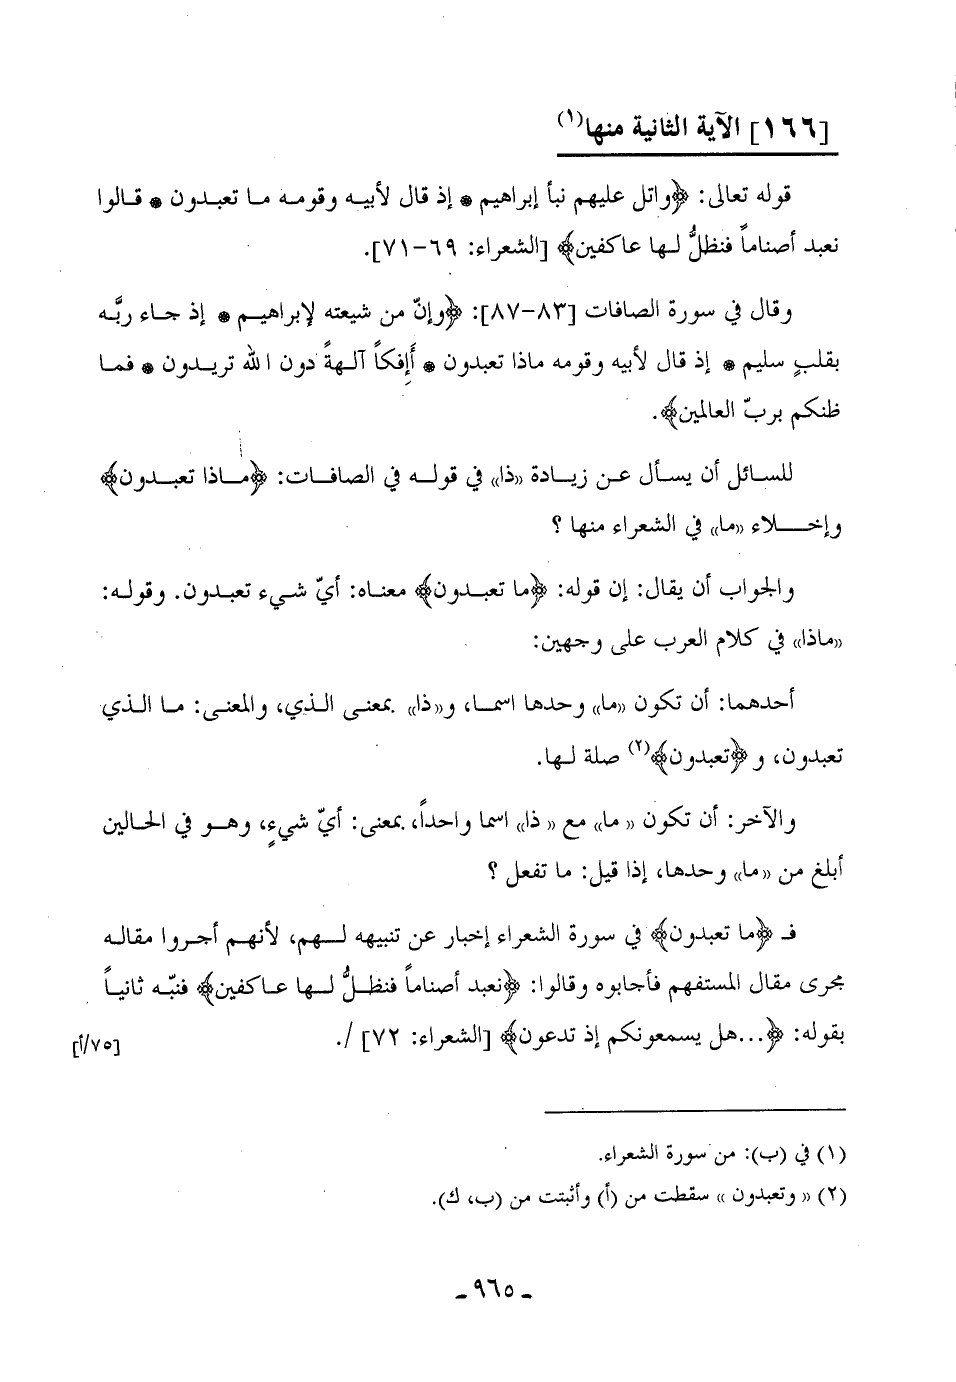 [١٦٦] الآية الثانية منها(١)
قوله تعالى: ﴿واتل عليهم نبأ إبراهيم * إذ قال لأبيه وقومه ما تعبدون * قالوا
نعبد أصناماً فنظلُّ لها عاكفين﴾ [الشعراء: ٦٩-٧١].
وقال في سورة الصافات [٨٣-٨٧]: ﴿وإنّ من شيعته لإبراهيم * إذ جاء ربَّه
بقلبٍ سليم * إذ قال لأبيه وقومه ماذا تعبدون * أَإِفكاً آلهةً دون الله تريدون * فما
ظنكم بربّ العالمين﴾.
للسائل أن يسأل عن زيادة «ذا» في قوله في الصافات: ﴿ماذا تعبدون﴾
وإخلاء «ما» في الشعراء منها ؟
والجواب أن يقال: إن قوله: ﴿ما تعبدون﴾ معناه: أيّ شيء تعبدون. وقوله:
«ماذا» في كلام العرب على وجهين:
أحدهما: أن تكون «ما» وحدها اسما، و«ذا» بمعنى الذي، والمعنى: ما الذي
تعبدون، و ﴿تعبدون﴾(٢) صلة لها.
والآخر: أن تكون « ما» مع « ذا» اسما واحداً، بمعنى: أيّ شيءٍ، وهو في الحالين
أبلغ من «ما» وحدها، إذا قيل: ما تفعل ؟
فـ ﴿ما تعبدون﴾ في سورة الشعراء إخبار عن تنبيهه لهم، لأنهم أجروا مقاله
مجرى مقال المستفهم فأجابوه وقالوا: ﴿نعبد أصناماً فنظلُّ لها عاكفين﴾ فنبّه ثانياً
بقوله: ﴿...هل يسمعونكم إذ تدعون﴾ [الشعراء: ٧٢] /. [٧٥/أ]
(١) في (ب): من سورة الشعراء.
(٢) « وتعبدون » سقطت من (أ) وأثبتت من (ب، ك).
- ٩٦٥ -